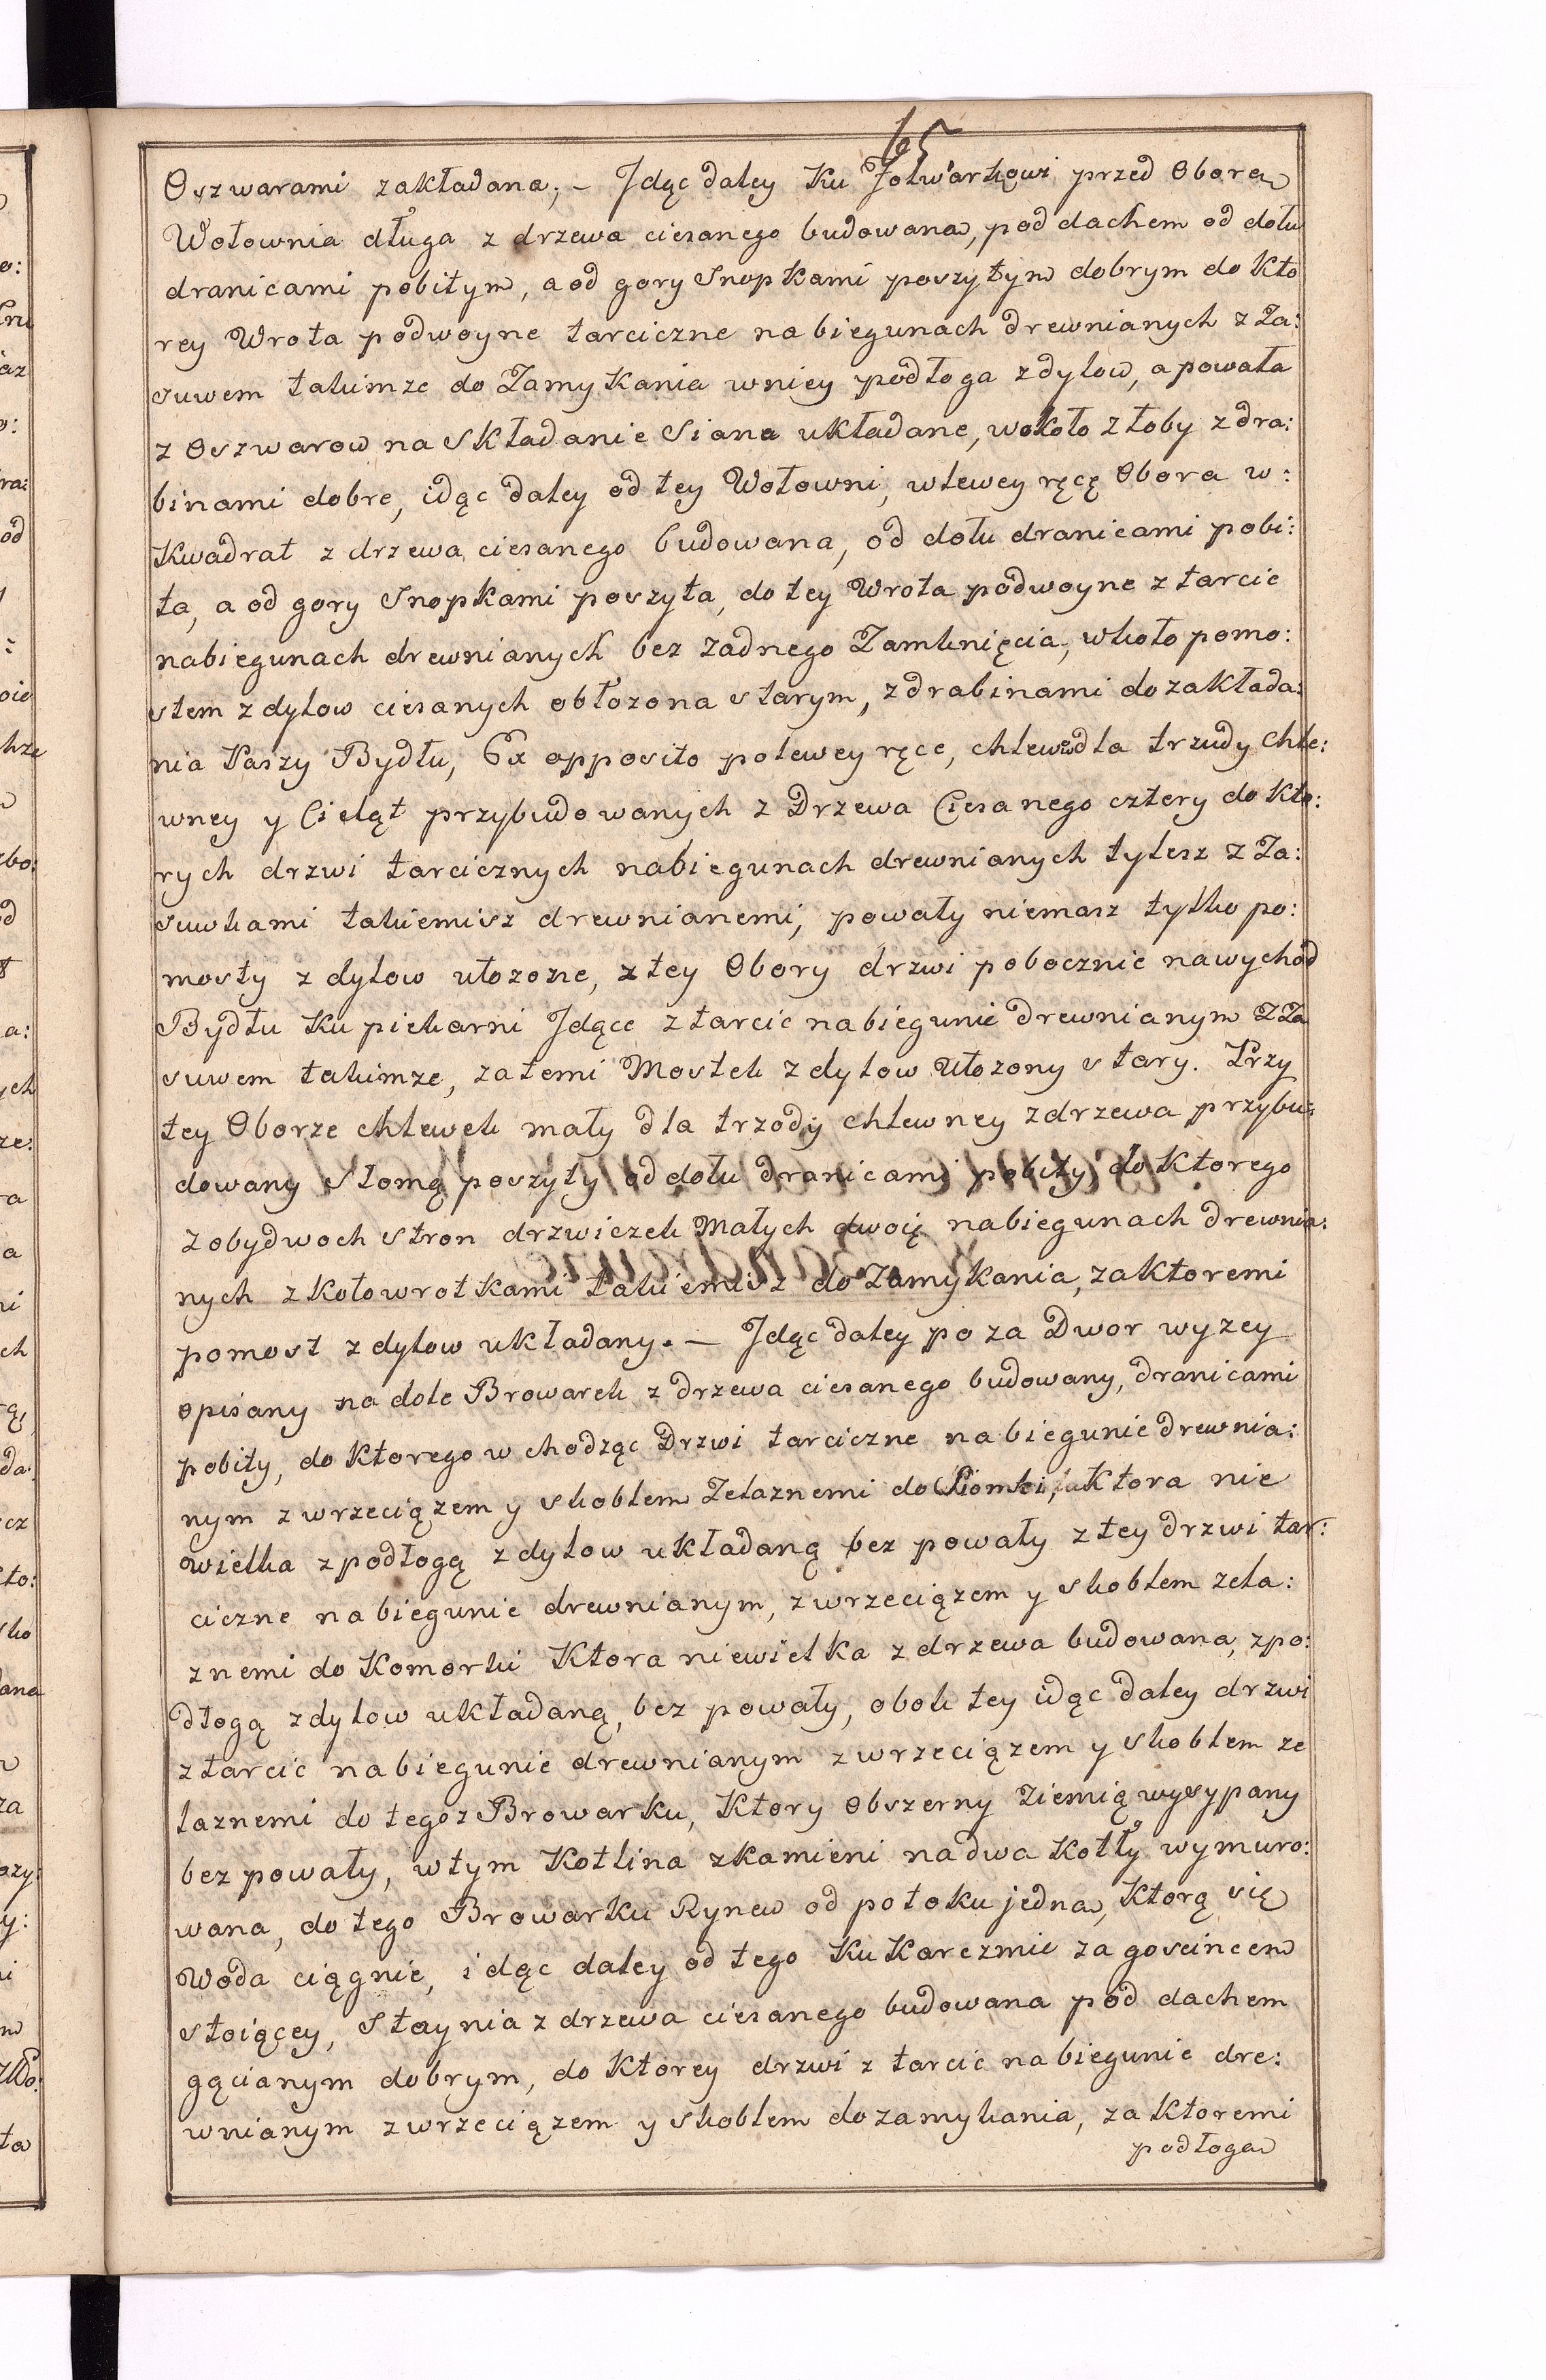 65
Oszwarami zakładana; – Jdąc daley Ku Folwarkowi przed Oborą
Wołownia długa z drzewa ciesanego budowana, pod dachem od dołu
dranicami pobitym, a od gory Snopkami poszytym dobrym do Kto
rey Wrota podwoyne tarciczne na biegunach drewnianych z Za:
suwem takimze do Zamykania wniey podłoga z dylow, a powała
z Oszwarow na Składanie Siana układane, wokoło złoby z dra:
binami dobre, idąc daley od tey Wołowni, wlewey ręcę Obora w:
Kwadrat z drzewa ciesanego budowana, od dołu dranicami pobi:
ta, a od gory Snopkami poszyta, do tey Wrota podwoyne z tarcic
nabiegunach drewnianych bez zadnego Zamknięcia, wkoło pomo:
stem z dylow ciesanych obłozona starym, z drabinami do zakłada:
nia Paszy Bydłu, Ex opposito polewey ręce, chlewow dla trzudy Chle:
wney y Cieląt przybudowanych z Drzewa Ciesanego cztery do Kto:
rych drzwi tarcicznych nabiegunach drewnianych tylesz z Za:
suwkami takiemisz drewnianemi, powały niemasz tylko po:
mosty z dylow ułozone, z tey Obory drzwi pobocznie na wychod
Bydłu Ku piekarni Jdące z tarcic na biegunie drewnianym z Za
suwem takimze, zatemi Mostek z dylow Ułozony stary. Przy
tey Oborze chlewek mały dla trzody chlewney z drzewa przybu:
dowany Słomą poszyty od dołu dranicami pobity do Ktorego
z obydwoch stron drzwiczek Małych dwoię nabiegunach drewnia:
nych z Kołowrotkami takiemisz do Zamykania, zaktoremi
pomost z dylow układany. – Jdąc daley po za Dwor wyzey
opisany na dole Browarek z drzewa ciesanego budowany, dranicami
pobity, do Ktorego wchodząc Drzwi tarciczne na biegunie drewnia:
nym z wrzeciązem y skoblem Zelaznemi do Sionki, Ktora nie
wielka z podłogą z dylow układaną bez powały z tey drzwi tar:
ciczne na biegunie drewnianym, z wrzeciązem y skoblem zela:
znemi do Komorki Ktora niewielka z drzewa budowana, z po:
dłogą z dylow układaną, bez powały, obok tey idąc daley drzwi
z tarcic na biegunie drewnianym z wrzeciązem y skoblem ze
laznemi do tegoz Browarku, Ktory obszerny Ziemią wysypany
bez powały, wtym Kotlina z kamieni na dwa Kotły wymuro:
wana, do tego Browarku Rynew od potoku jedna, Ktorą się
Woda ciągnie, idąc daley od tego Ku Karczmie za goscincem
stoiącey, Staynia z drzewa ciesanego budowana pod dachem
gącianym dobrym, do Ktorey drzwi z tarcic na biegunie dre:
wnianym z wrzeciązem y skoblem do zamykania, za Ktoremi
podłoga